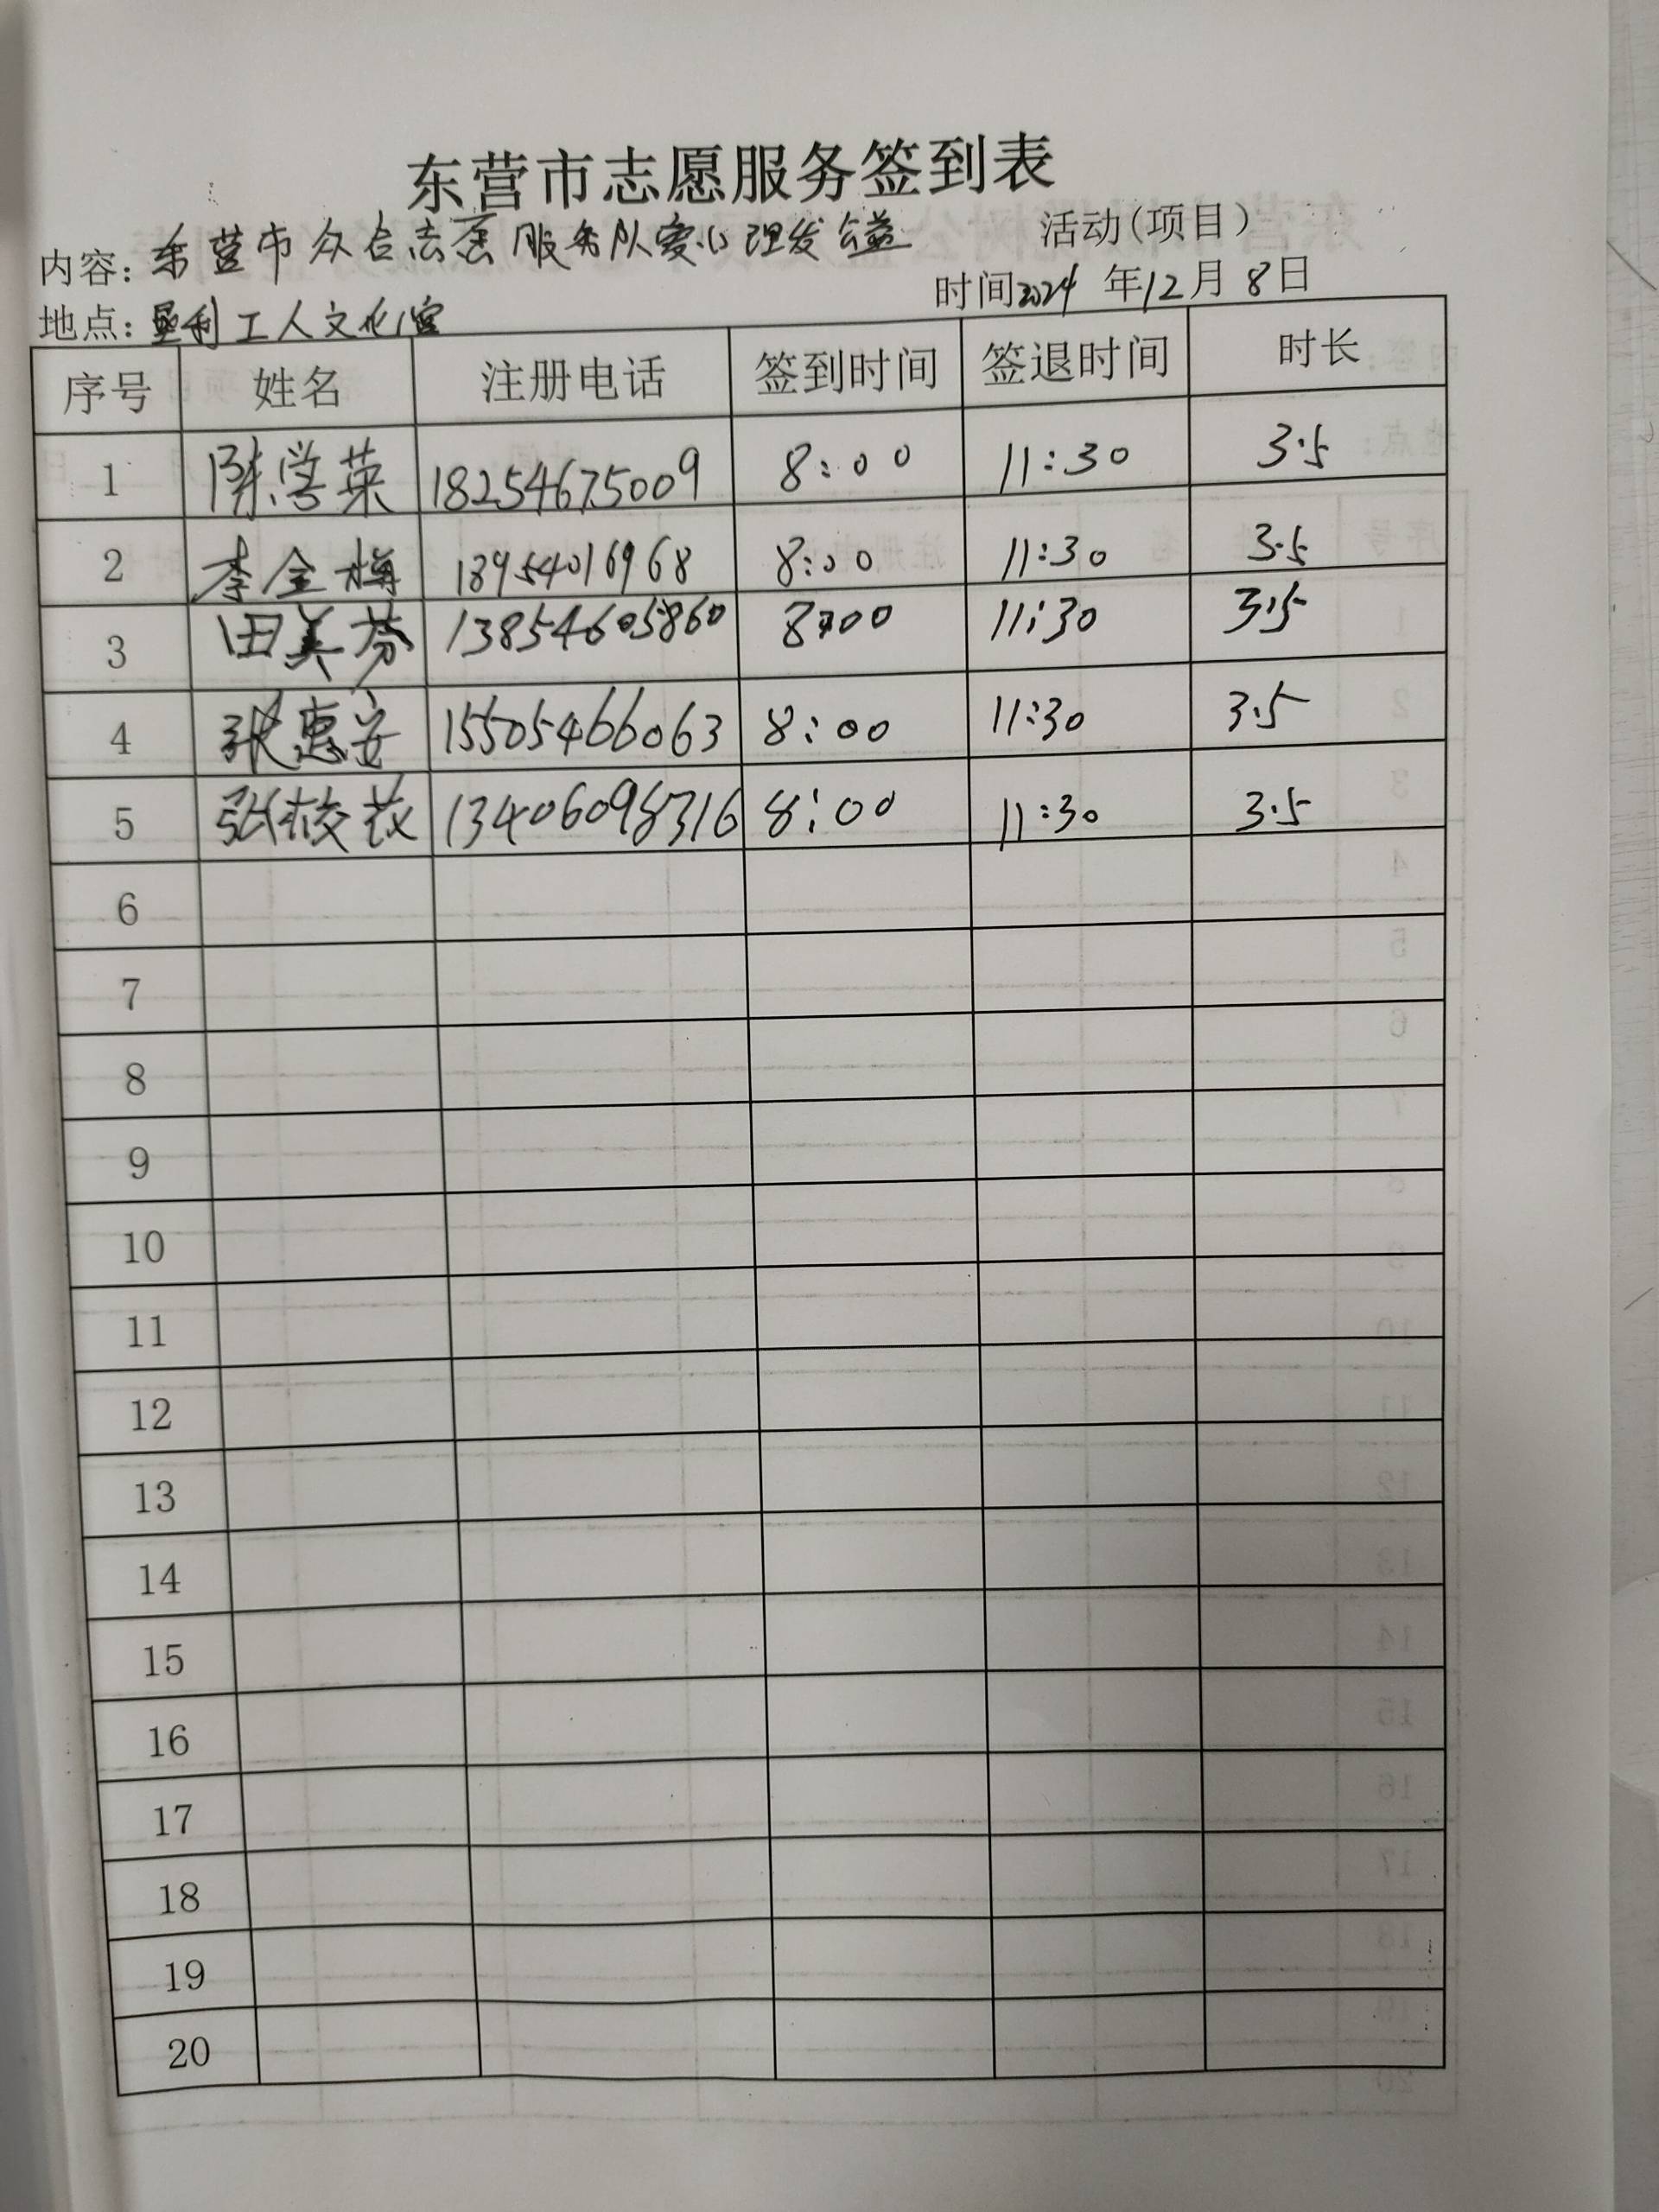 东营市志愿服务签到表
内容：东营市众合志愿服务队爱心理发公益 活动（项目）
地点：垦利工人文化宫 时间2024年12月8日
序号 姓名 注册电话 签到时间 签退时间 时长
1 陈学英 18254675009 8:00 11:30 3.5
2 李金梅 18954016968 8:00 11:30 3.5
3 田美芬 13854605860 8:00 11:30 3.5
4 张惠安 15505466063 8:00 11:30 3.5
5 张 13406098316 8:00 11:30 3.5
6
7
8
9
10
11
12
13
14
15
16
17
18
19
20